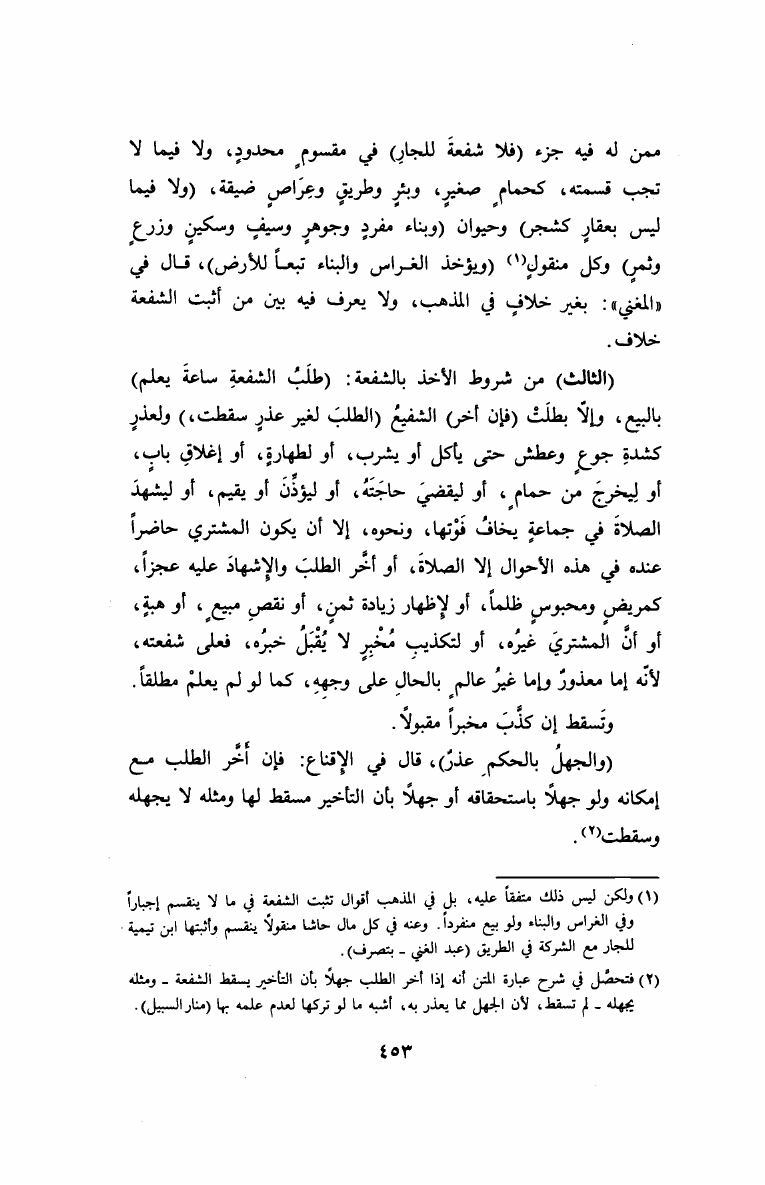 ممن له فيه جزء (فلا شفعةَ للجارِ) في مقسومٍ محدودٍ، ولا فيما لا
تجب قسمته، كحمامٍ صغيرٍ، وبئرٍ وطريقٍ وعِرَاصٍ ضيقة، (ولا فيما
ليس بعقارٍ كشجرٍ) وحيوان (وبناء مفردٍ وجوهرٍ وسيفٍ وسكينٍ وزرعٍ
وثمرٍ) وكل منقولٍ(١) (ويؤخذ الغراس والبناء تبعاً للأرض)، قال في
«المغني»: بغير خلافٍ في المذهب، ولا يعرف فيه بين من أثبت الشفعة
خلاف.
(الثالث) من شروط الأخذ بالشفعة: (طلَبُ الشفعةِ ساعةَ يعلم)
بالبيع، وإلّا بطلَتْ (فإن أخر) الشفيعُ (الطلبَ لغير عذرٍ سقطت،) ولعذرٍ
كشدةِ جوعٍ وعطش حتى يأكل أو يشرب، أو لطهارةٍ، أو إغلاقِ بابٍ،
أو لِيخرجَ من حمامٍ، أو ليقضيَ حاجَتَهُ، أو ليؤذِّنَ أو يقيم، أو ليشهدَ
الصلاةَ في جماعةٍ يخافُ فَوْتها، ونحوه، إلا أن يكون المشتري حاضراً
عنده في هذه الأحوال إلا الصلاةَ، أو أخَّر الطلبَ والإِشهادَ عليه عجزاً،
كمريضٍ ومحبوسٍ ظلماً، أو لإظهار زيادة ثمنٍ، أو نقصِ مبيعٍ، أو هبةٍ،
أو أنَّ المشتريَ غيرُه، أو لتكذيبِ مُخْبِرٍ لا يُقْبَلُ خبرُه، فعلى شفعته،
لأنّه إما معذورٌ وإما غيرُ عالمٍ بالحالِ على وجههِ، كما لو لم يعلمْ مطلقاً.
وتَسقط إن كذَّبَ مخبراً مقبولاً.
(والجهلُ بالحكمِ عذرٌ)، قال في الإِقناع: فإن أَخَّر الطلب مع
إمكانه ولو جهلاً باستحقاقه أو جهلاً بأن التأخير مسقط لها ومثله لا يجهله
وسقطت(٢).
(١) ولكن ليس ذلك متفقاً عليه، بل في المذهب أقوال تثبت الشفعة في ما لا ينقسم إجباراً
وفي الغراس والبناء ولو بيع منفرداً. وعنه في كل مال حاشا منقولاً ينقسم وأثبتها ابن تيمية
للجار مع الشركة في الطريق (عبد الغني - بتصرف).
(٢) فتحصَّل في شرح عبارة المتن أنه إذا أخر الطلب جهلاً بأن التأخير يسقط الشفعة - ومثله
يجهله - لم تسقط، لأن الجهل مما يعذر به، أشبه ما لو تركها لعدم علمه بها (منار السبيل).
٤٥٣